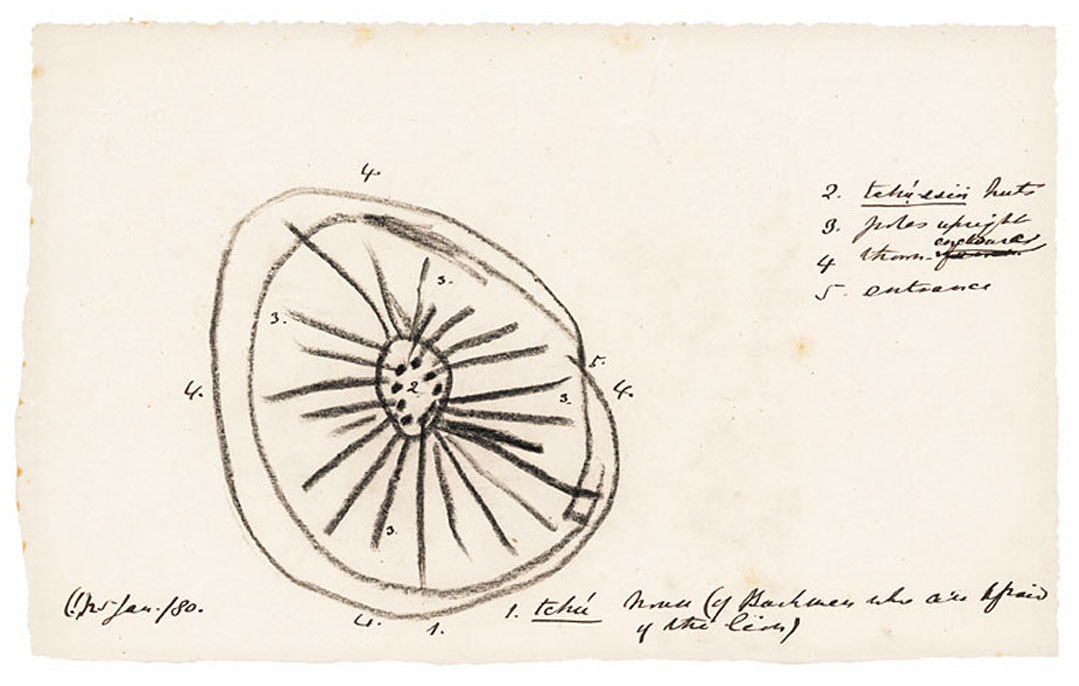 4.
2. tchú-ssin huts
3. poles upright
enclosures
4 thorn-
5. entrance
3.
3.
5.
4.
2
4.
3.
3.
(!) 25 Jan. /80.
4.
1.
1. tchú (of Bushmen who are afraid
of the lion)